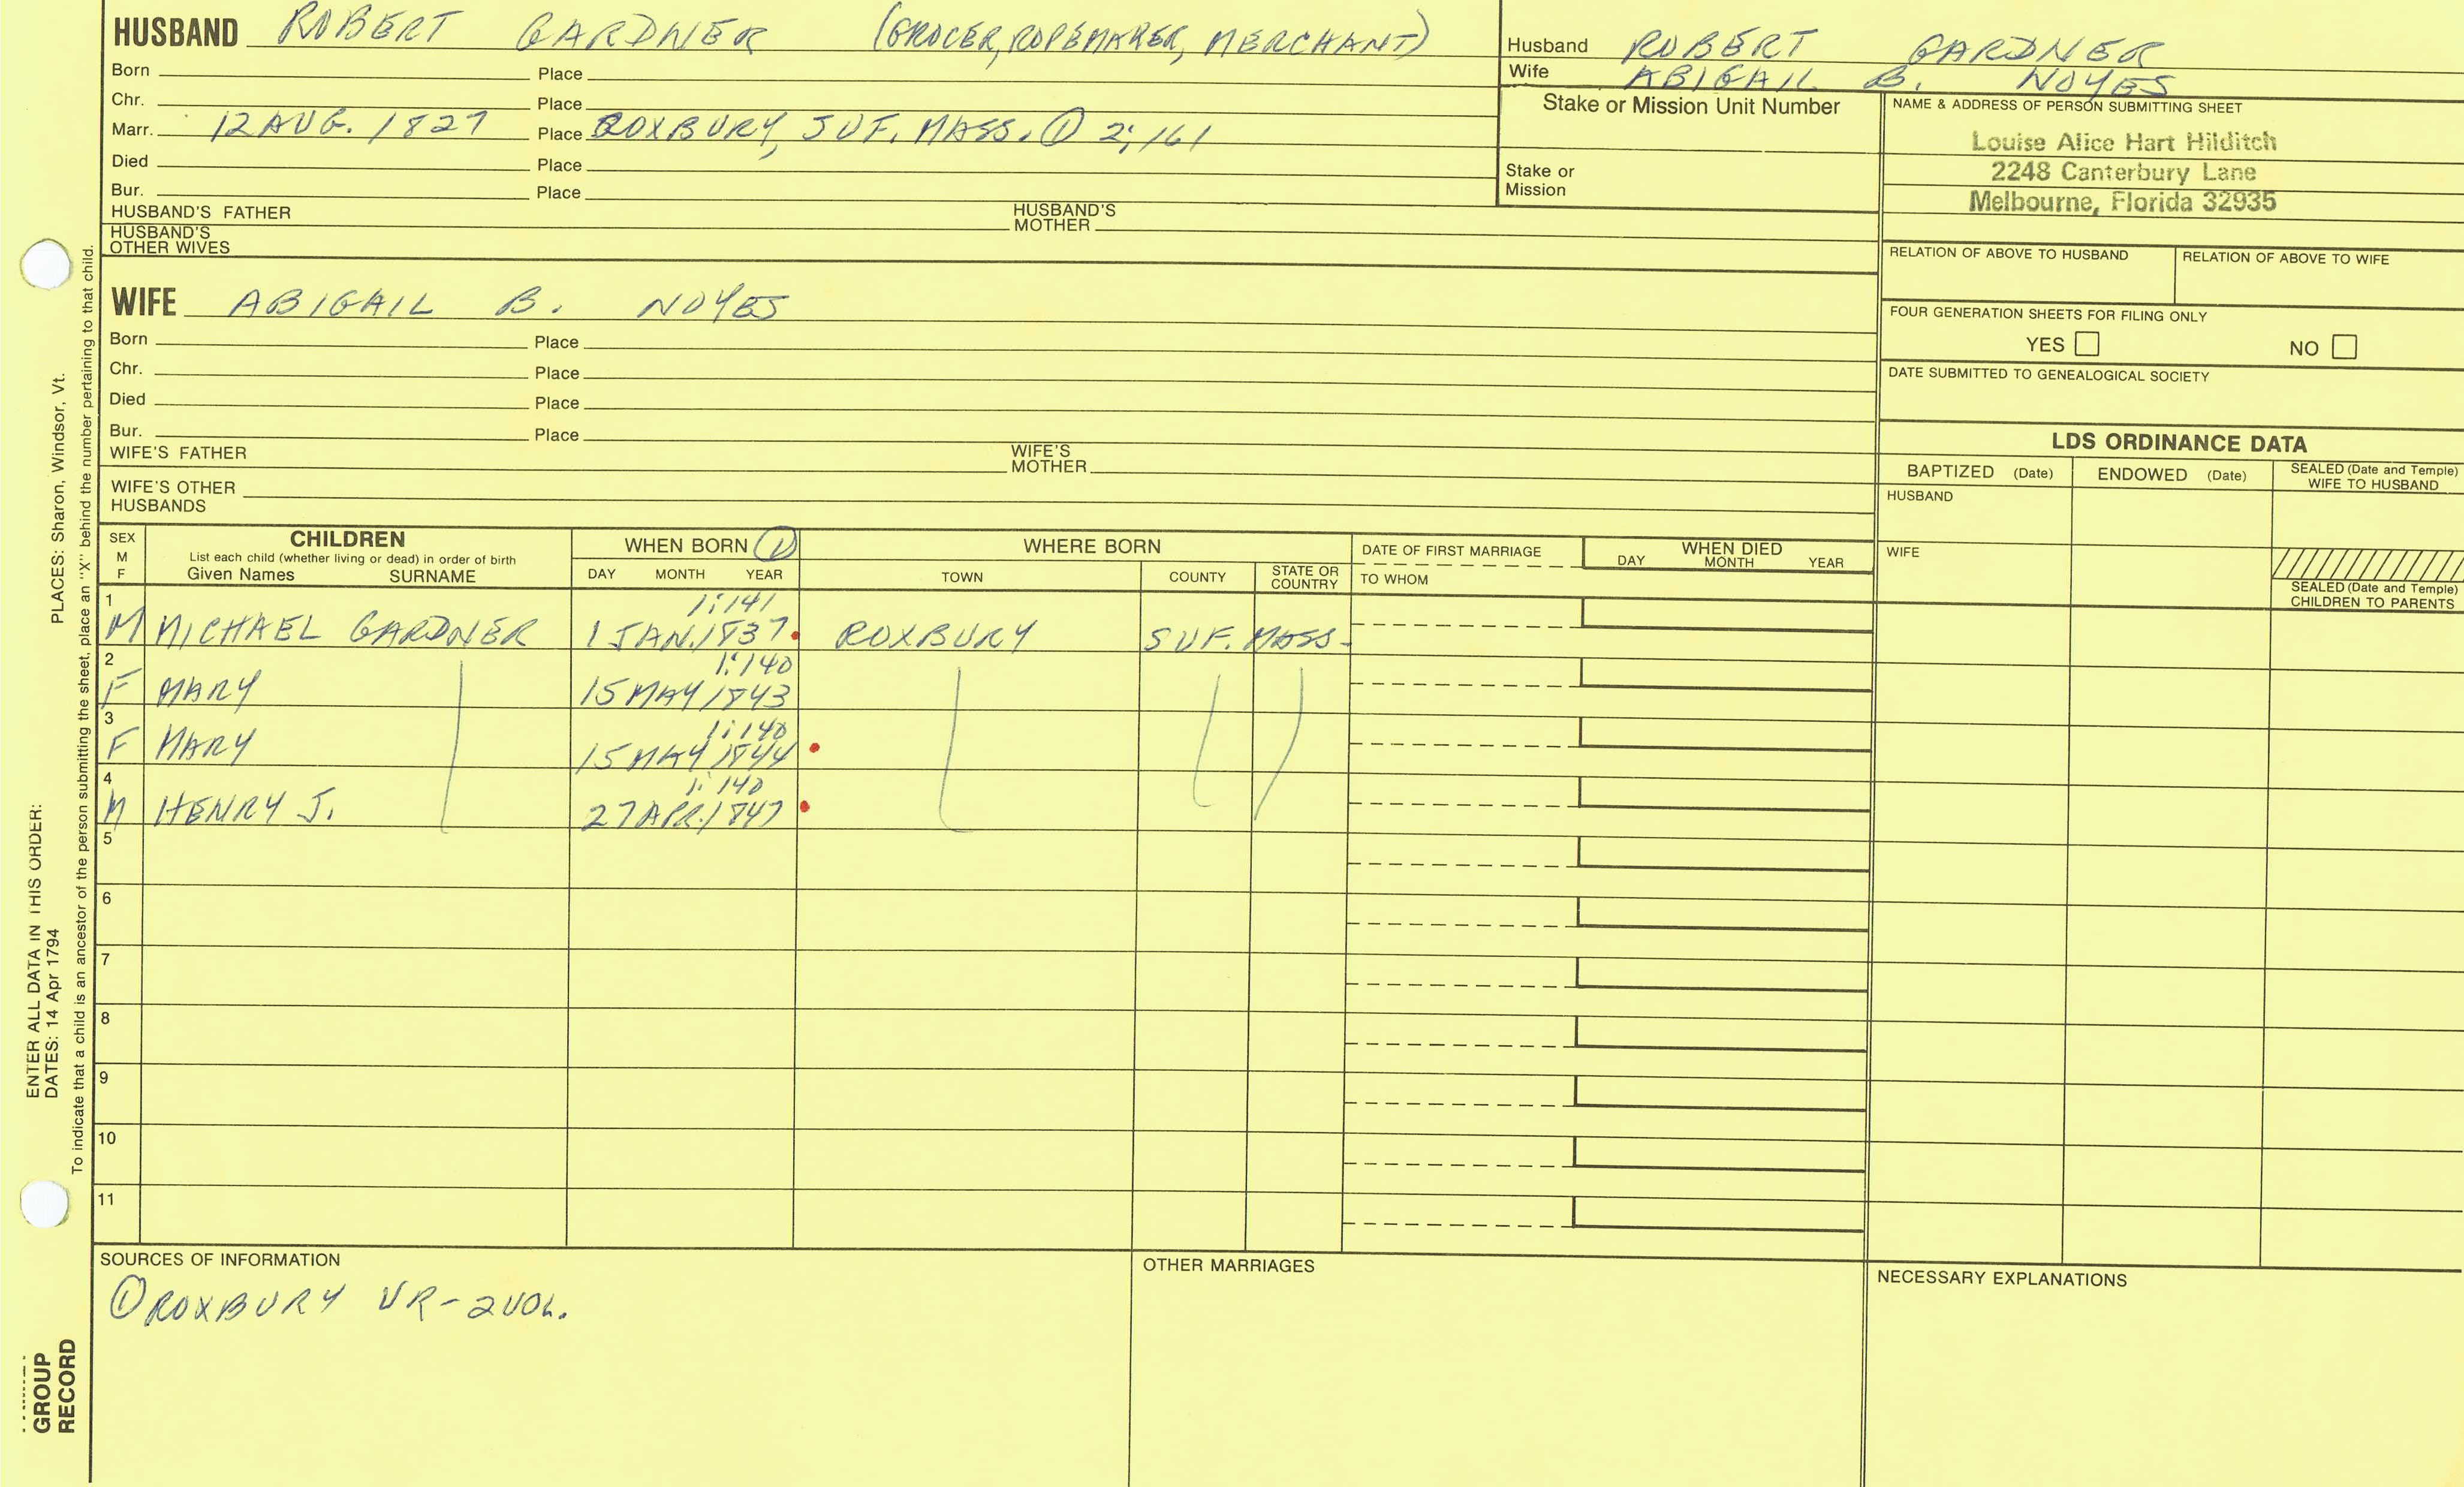 HUSBAND ROBERT GARDNER (GROCER, ROPEMAKER, MERCHANT)
Born Place
Chr. Place
Marr. 12 AUG. 1827 Place ROXBURY, SUF. MASS. ① 2:161
Died Place
Bur. Place
HUSBAND'S FATHER HUSBAND'S MOTHER
HUSBAND'S OTHER WIVES
Husband ROBERT GARDNER
Wife ABIGAIL B. NOYES
Stake or Mission Unit Number
Stake or Mission
NAME & ADDRESS OF PERSON SUBMITTING SHEET
Louise Alice Hart Hilditch
2248 Canterbury Lane
Melbourne, Florida 32935
RELATION OF ABOVE TO HUSBAND RELATION OF ABOVE TO WIFE
FOUR GENERATION SHEETS FOR FILING ONLY
YES NO
DATE SUBMITTED TO GENEALOGICAL SOCIETY
WIFE ABIGAIL B. NOYES
Born Place
Chr. Place
Died Place
Bur. Place
WIFE'S FATHER WIFE'S MOTHER
WIFE'S OTHER HUSBANDS
LDS ORDINANCE DATA
BAPTIZED (Date) ENDOWED (Date) SEALED (Date and Temple) WIFE TO HUSBAND
HUSBAND
WIFE
SEALED (Date and Temple) CHILDREN TO PARENTS
SEX M F
CHILDREN
List each child (whether living or dead) in order of birth
Given Names SURNAME
WHEN BORN ①
DAY MONTH YEAR
WHERE BORN
TOWN COUNTY STATE OR COUNTRY
DATE OF FIRST MARRIAGE
TO WHOM
WHEN DIED
DAY MONTH YEAR
1 1:141
M MICHAEL GARDNER 1 JAN. 1837 ROXBURY SUF. MASS.
2 1:140
F MARY 15 MAY 1843
3 1:140
F MARY 15 MAY 1844
4 1:140
M HENRY J. 27 APR. 1847
5
6
7
8
9
10
11
SOURCES OF INFORMATION
① ROXBURY VR - 2 VOL.
OTHER MARRIAGES
NECESSARY EXPLANATIONS
ENTER ALL DATA IN THIS ORDER:
DATES: 14 Apr 1794
PLACES: Sharon, Windsor, Vt.
To indicate that a child is an ancestor of the person submitting the sheet, place an "X" behind the number pertaining to that child.
GROUP
RECORD